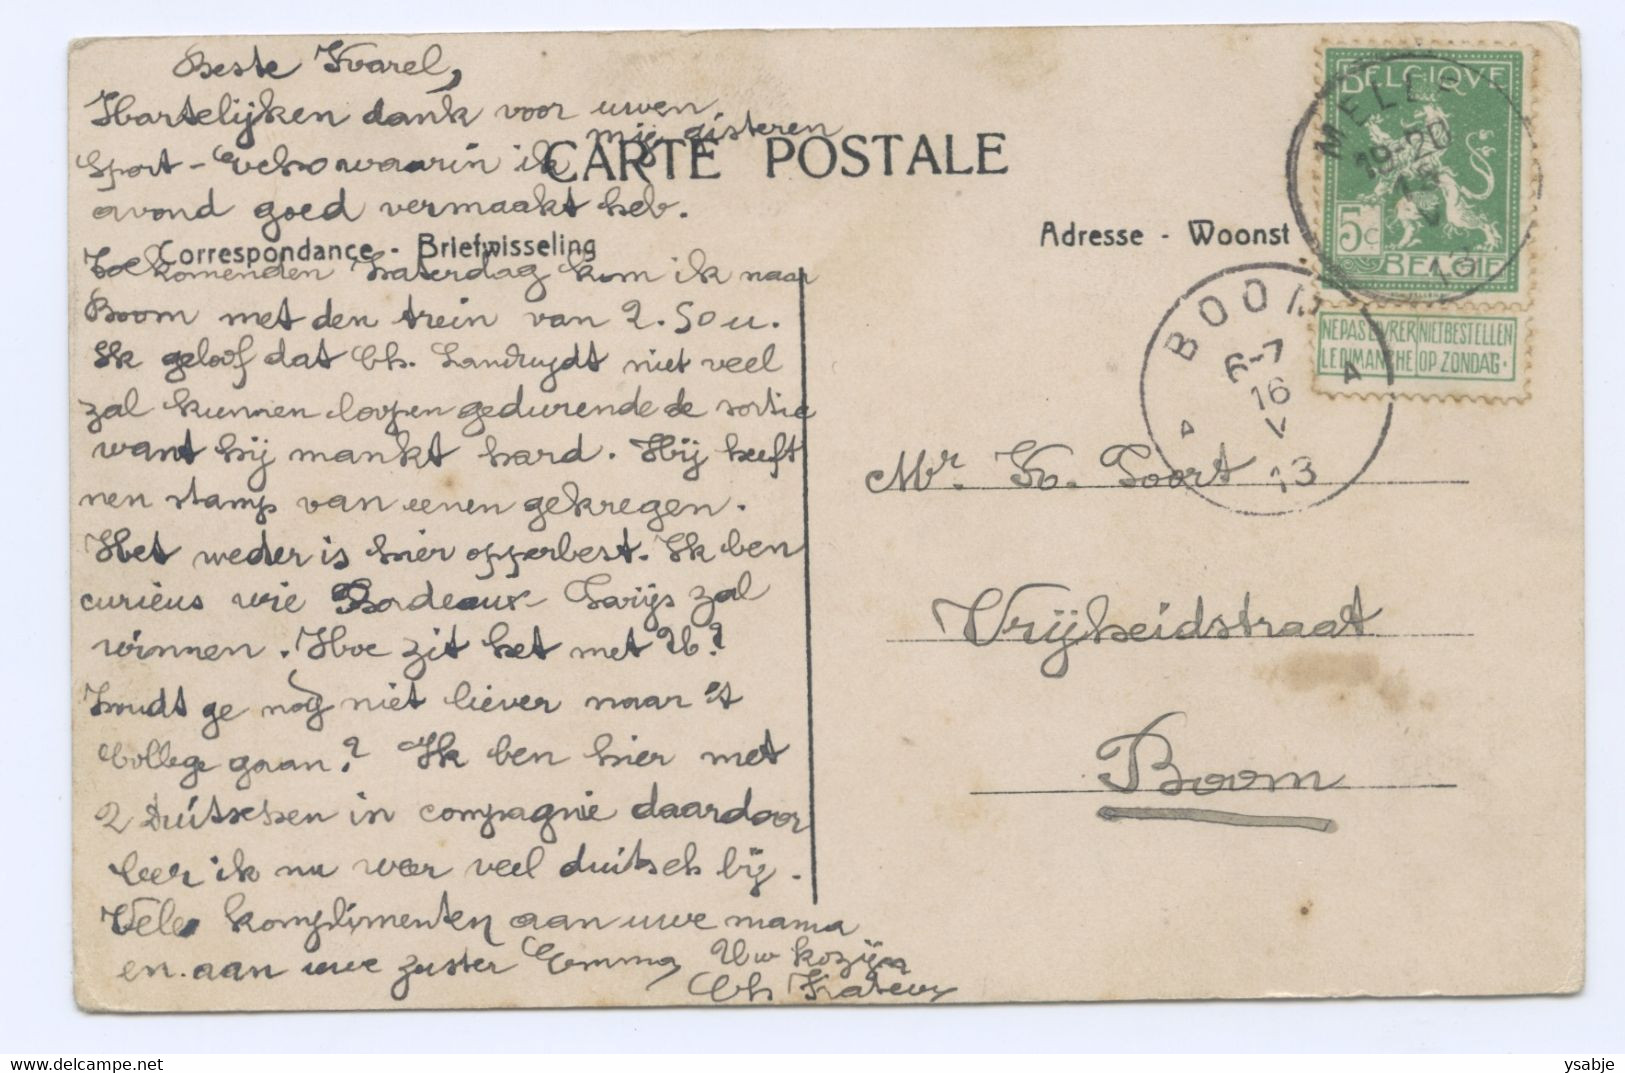 Beste Karel,
Hartelijken dank voor uwen
Sport-Echo waarin ik mij gisteren
avond goed vermaakt heb.
Toekomenden Zaterdag kom ik naar
Boom met den trein van 2.50 u.
Ik geloof dat Ch. Landruydt niet veel
zal kunnen loopen gedurende de sortie
want hij mankt hard. Hij heeft
nen stamp van eenen gekregen.
Het weder is hier opperbest. Ik ben
curieus wie Bordeaux-Parijs zal
winnen. Hoe zit het met U?
Zoudt ge nog niet liever naar 't
College gaan? Ik ben hier met
2 Duitschen in compagnie daardoor
leer ik nu weer veel duitsch bij.
Vele komplimenten aan uwe mama
en aan uwe zuster Emma, Uw kozijn
Ch
CARTE POSTALE
Correspondance - Briefwisseling
Adresse - Woonst
BELGIQUE
5c
BELGIE
NE PAS LIVRER LE DIMANCHE
NIET BESTELLEN OP ZONDAG.
MELLE
19-20
15
V
13
BOOM
6-7
16
V
13
A
A
Mr. K. Poort
Vrijheidstraat
Boom
ysabje